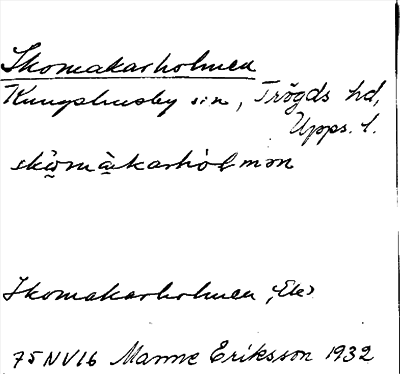 Skomakarholmen
Kungshusby sn, Trögds hd,
Upps. l.
skòmàkarhòlmən
Skomakarholmen, Ek)
75NV16 Manne Eriksson 1932